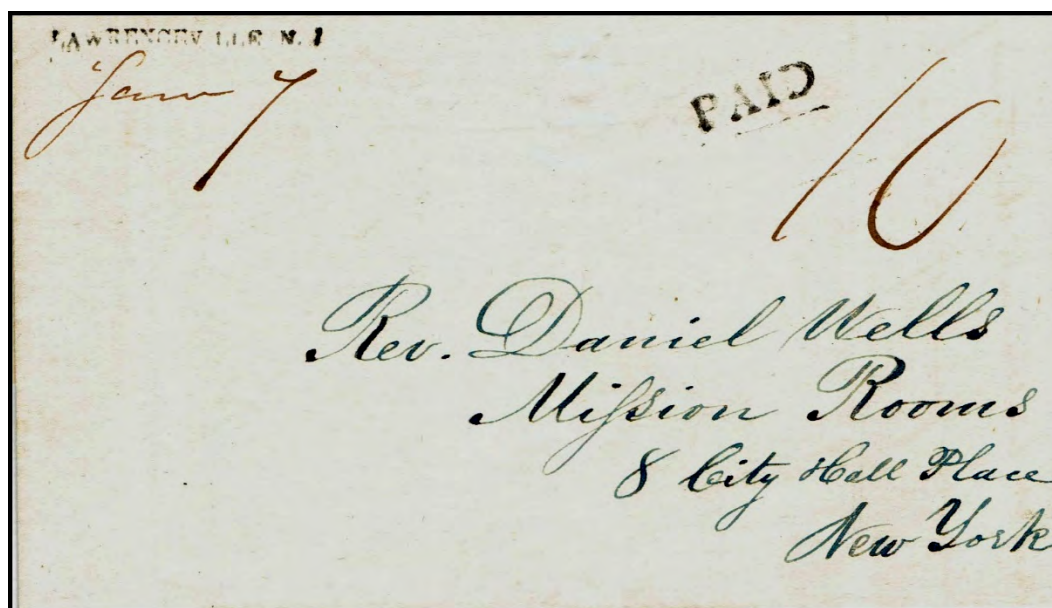 LAWRENCEVILLE N. J
Jan 7
PAID
10
Rev. Daniel Wells
Miſsion Rooms
8 City Hall Place
New York